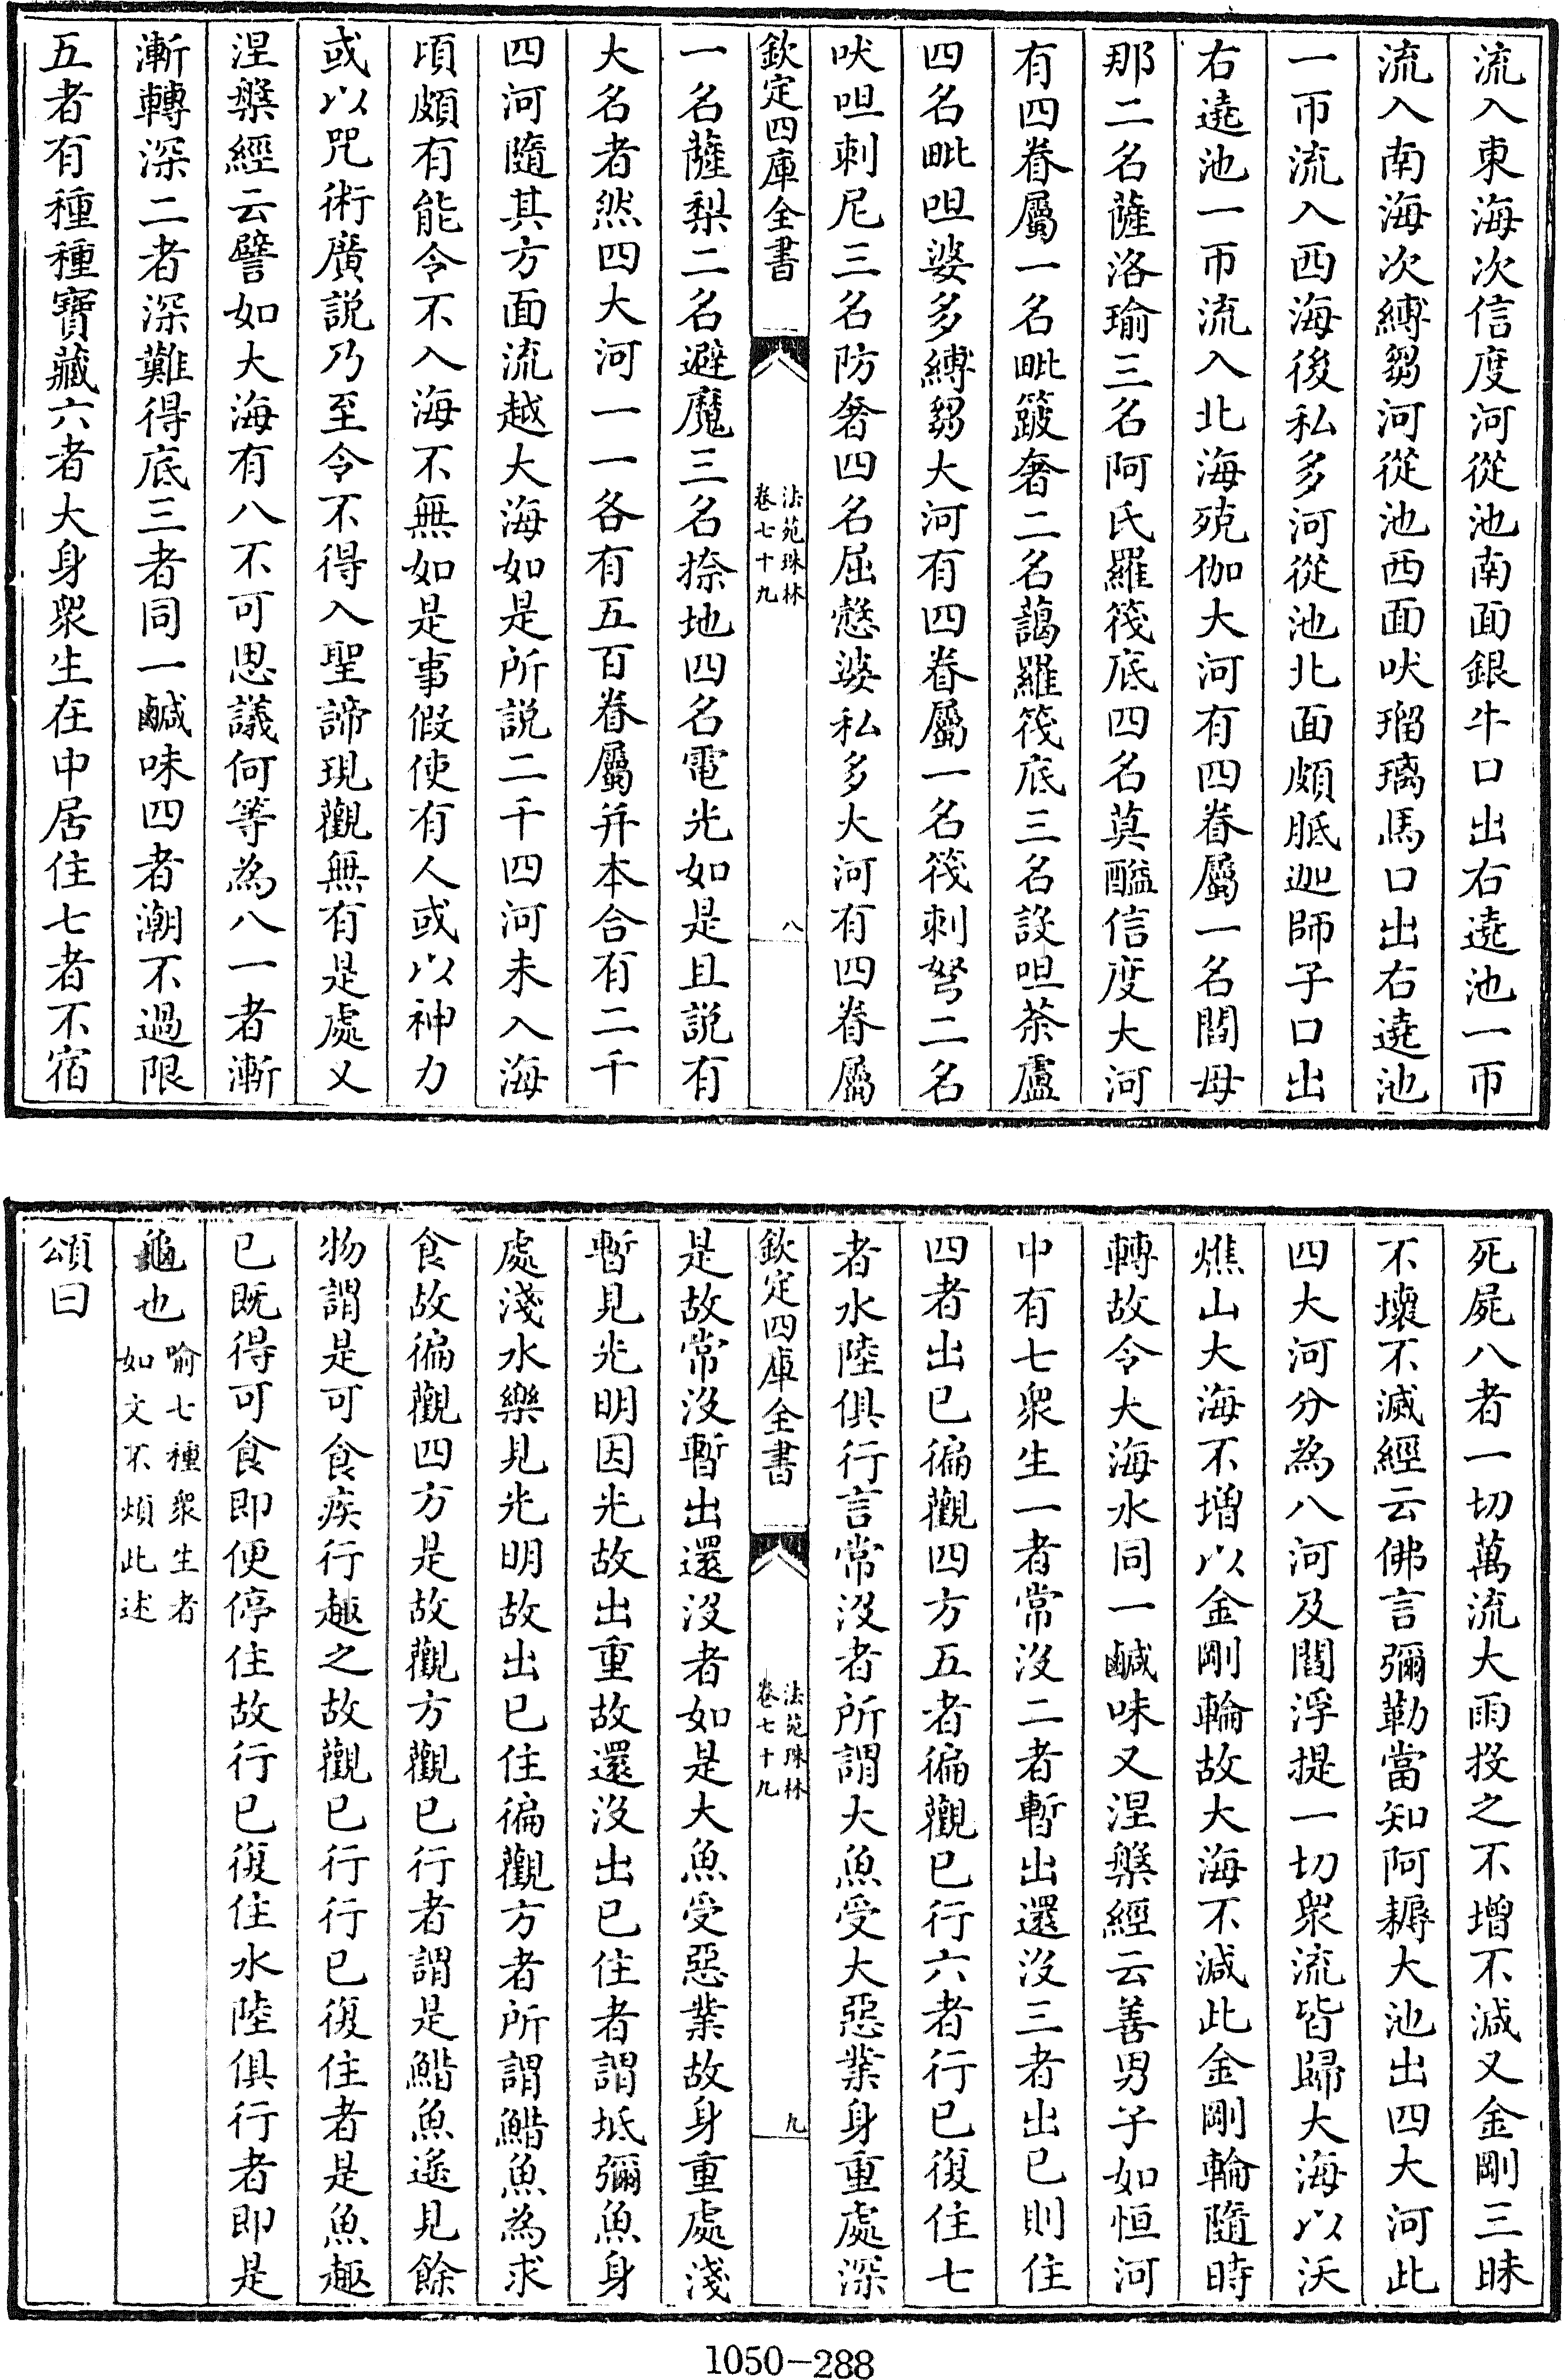 流入東海次信度河從池南面銀牛口出右遶池一帀
流入南海次縛芻河從池西面吠瑠璃馬口出右遶池
一帀流入西海後私多河從池北面頗胝迦師子口出
右遶池一帀流入北海殑伽大河有四眷屬一名閻母
那二名薩洛瑜三名阿氏羅筏底四名莫醯信度大河
有四眷屬一名毗簸奢二名藹羅筏底三名設呾荼盧
四名毗呾婆多縛芻大河有四眷屬一名筏刺弩二名
吠呾刺尼三名防奢四名屈愸婆私多大河有四眷屬
欽定四庫全書
法苑珠林
卷七十九
八
一名薩梨二名避魔三名捺地四名電光如是且説有
大名者然四大河一一各有五百眷屬并本合有二千
四河隨其方面流越大海如是所説二千四河未入海
頃頗有能令不入海不無如是事假使有人或以神力
或以咒術廣説乃至令不得入聖諦現觀無有是處又
涅槃經云譬如大海有八不可思議何等為八一者漸
漸轉深二者深難得底三者同一鹹味四者潮不過限
五者有種種寶藏六者大身衆生在中居住七者不宿
死屍八者一切萬流大雨投之不增不減又金剛三昧
不壞不滅經云佛言彌勒當知阿耨大池出四大河此
四大河分為八河及閻浮提一切衆流皆歸大海以沃
燋山大海不增以金剛輪故大海不減此金剛輪隨時
轉故令大海水同一鹹味又涅槃經云善男子如恒河
中有七衆生一者常沒二者暫出還沒三者出已則住
四者出已徧觀四方五者徧觀已行六者行已復住七
者水陸俱行言常沒者所謂大魚受大惡業身重處深
欽定四庫全書
法苑珠林
卷七十九
九
是故常沒暫出還沒者如是大魚受惡業故身重處淺
暫見光明因光故出重故還沒出已住者謂坻彌魚身
處淺水樂見光明故出已住徧觀方者所謂䱜魚為求
食故徧觀四方是故觀方觀已行者謂是䱜魚遙見餘
物謂是可食疾行趣之故觀已行行已復住者是魚趣
已既得可食即便停住故行已復住水陸俱行者即是
龜也喻七種衆生者
如文不煩此述
頌曰
1050-288